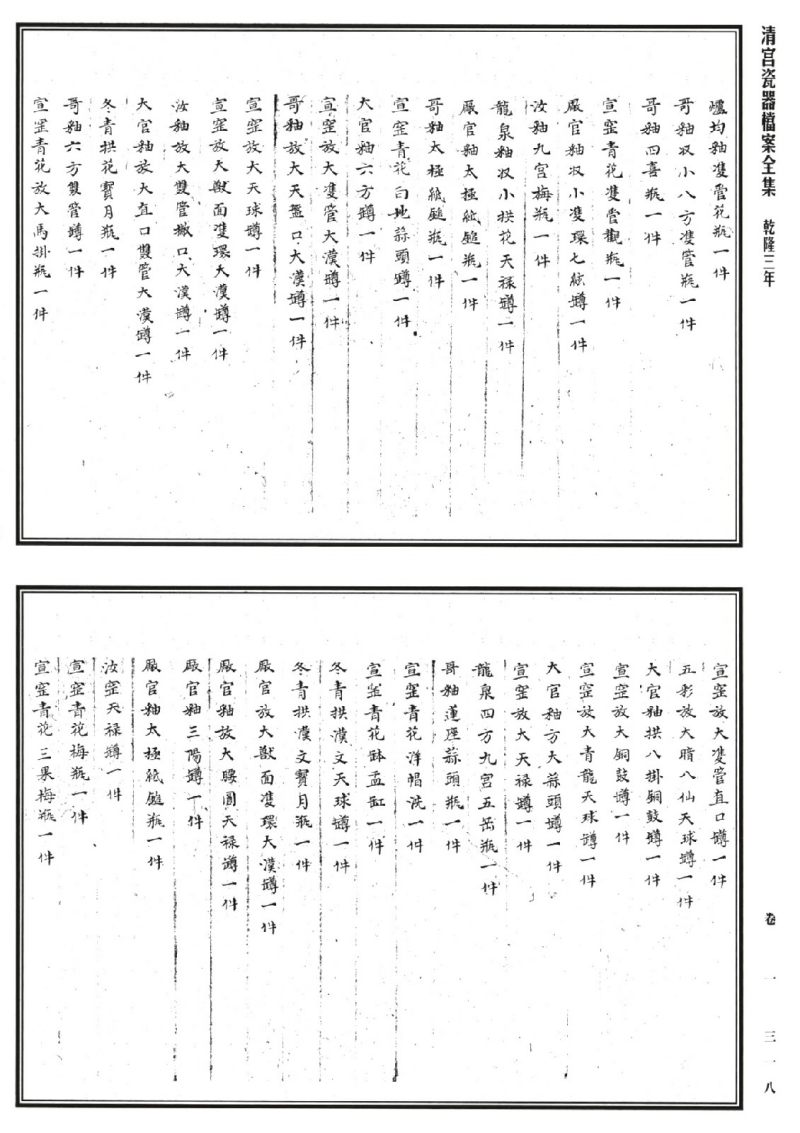 清宫瓷器檔案全集 乾隆三年
爐均釉雙管花瓶一件
哥釉收小八方雙管瓶一件
哥釉四喜瓶一件
宣窑青花雙管觀瓶一件
厰官釉收小雙環七絃罇一件
汝釉九宫梅瓶一件
龍泉釉收小拱花天禄罇一件
厰官釉太極紙鎚瓶一件
哥釉太極紙鎚瓶一件
宣窑青花白地蒜頭罇一件
大官釉六方罇一件
宣窑放大雙管大漢罇一件
哥釉放大天盤口大漢罇一件
宣窑放大天球罇一件
宣窑放大獸面雙環大漢罇一件
汝釉放大雙管撇口大漢罇一件
大官釉放大直口雙管大漢罇一件
冬青拱花寳月瓶一件
哥釉六方雙管罇一件
宣窑青花放大馬掛瓶一件
宣窑放大雙管直口罇一件
五彩放大暗八仙天球罇一件
大官釉拱八掛銅鼓罇一件
宣窑放大銅鼓罇一件
宣窑放大青龍天球罇一件
大官釉方大蒜頭罇一件
宣窑放大天禄罇一件
龍泉四方九宫五岳瓶一件
哥釉蓮座蒜頭瓶一件
宣窑青花洋帽洗一件
宣窑青花缽盂缸一件
冬青拱漢文天球罇一件
冬青拱漢文寳月瓶一件
厰官放大獸面雙環大漢罇一件
厰官釉放大腰圓天禄罇一件
厰官釉三陽罇一件
厰官釉太極紙鎚瓶一件
汝窑天禄罇一件
宣窑青花梅瓶一件
宣窑青花三果梅瓶一件
卷一 三一八